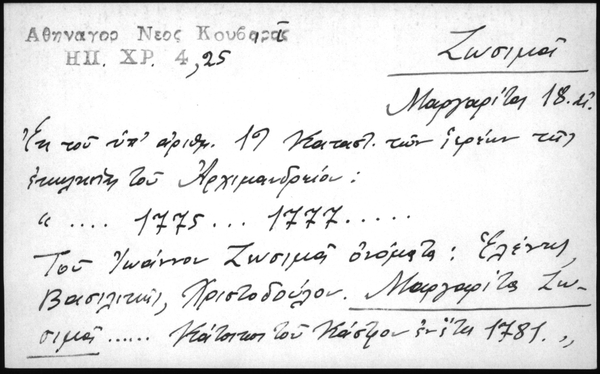 Αθηναγορ Νεος Κουβαρᾶς
ΗΠ. ΧΡ. 4, 25
Ζωσιμᾶ
Μαργαρίτα 18.
Ἐκ τοῦ ὑπ' ἀριθμ. 19 Καταστ. τῶν ἱερέων τῆς
ἐκκλησίας τοῦ Ἀρχιμανδρείου:
“ .... 1775 ... 1777 .....
Τοῦ Ἰωάννου Ζωσιμᾶ ὀνόματα: Ἑλένης,
Βασιλικῆς, Χριστοδούλου. Μαργαρίτα Ζω-
σιμᾶ ...... Κάτοικοι τοῦ Κάστρου ἐν ἔτει 1781. „